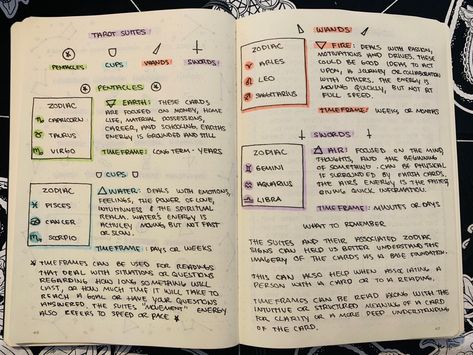 TAROT SUITES
PENTACLES CUPS WANDS SWORDS
PENTACLES
ZODIAC
CAPRICORN
TAURUS
VIRGO
EARTH: THESE CARDS
ARE FOCUSED ON MONEY, HOME
LIFE, MATERIAL POSSESSIONS,
CAREER, AND SCHOOLING. EARTHS
ENERGY IS GROUNDED AND STILL
TIMEFRAME: LONG TERM - YEARS
CUPS
ZODIAC
PISCES
CANCER
SCORPIO
WATER: DEALS WITH EMOTIONS,
FEELINGS, THE POWER OF LOVE,
INTUITIVENESS & THE SPIRITUAL
REALM. WATER'S ENERGY IS
MOVING BUT NOT FAST
OR SLOW.
TIMEFRAME: DAYS OR WEEKS
* TIMEFRAMES CAN BE USED FOR READINGS
THAT DEAL WITH SITUATIONS OR QUESTIONS
REGARDING HOW LONG SOMETHING WILL
LAST, OR HOW MUCH TIME IT WILL TAKE TO
REACH A GOAL OR HAVE YOUR QUESTIONS
ANSWERED, THE SUITES "MOVEMENT" ENERGY
ALSO REFERS TO SPEED OR PACE *
WANDS
ZODIAC
ARIES
LEO
SAGITTARIUS
FIRE: DEALS WITH PASSION,
MOTIVATIONS AND DRIVES. THESE
COULD BE GOOD IDEAS TO ACT
UPON, A JOURNEY OR COLLABORATION
WITH OTHERS, THE ENERGY IS
MOVING QUICKLY, BUT NOT AT
FULL SPEED.
TIMEFRAME: WEEKS OR MONTHS
SWORDS
ZODIAC
GEMINI
AQUARIUS
LIBRA
AIR: FOCUSED ON THE MIND,
THOUGHTS, AND THE BEGINNING
OF SOMETHING. CAN BE PHYSICAL
IF SURROUNDED BY EARTH CARDS,
THE AIR'S ENERGY IS THE FASTEST
GIVING QUICK INFORMATION.
TIMEFRAME: MINUTES OR DAYS
WHAT TO REMEMBER
THE SUITES AND THEIR ASSOCIATED ZODIAC
SIGNS CAN HELP TO BETTER UNDERSTAND THE
IMAGERY OF THE CARDS AS A BASE FOUNDATION.
THIS CAN ALSO HELP WHEN ASSOCIATING A
PERSON WITH A CARD OR TO A READING.
TIMEFRAMES CAN BE READ ALONG WITH THE
INTUITIVE OR STRUCTURED MEANING OF A CARD
FOR CLARITY OR A MORE DEEP UNDERSTANDING
OF THE CARD.